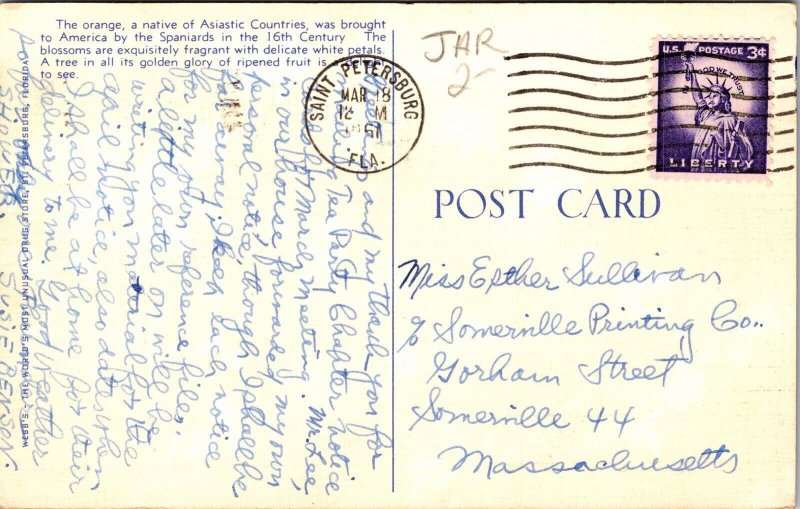 The orange, a native of Asiastic Countries, was brought
to America by the Spaniards in the 16th Century The
blossoms are exquisitely fragrant with delicate white petals.
A tree in all its golden glory of ripened fruit is a
to see.
JAR
2-
SAINT PETERSBURG
MAR 18
12 M
1961
FLA.
U.S. POSTAGE 3¢
IN GOD WE TRUST
LIBERTY
POST CARD
Miss Esther Sullivan
% Somerville Printing Co..
Gorham Street
Somerville 44
Massachusetts
and my thank-you for
Tea Party Chapter notice
March meeting. Mr. Lee,
in our house forwarded my own
personal notice, though I shall be
far away, I keep each notice
for my own reference files.
a little later on will be
writing you material for the
april notice, also dates when
I shall be at home for their
delivery to me. Good weather
SHOWER. SUSIE BENSON.
WEBB'S - THE WORLD'S MOST UNUSUAL DRUG STORE, ST. PETERSBURG, FLORIDA